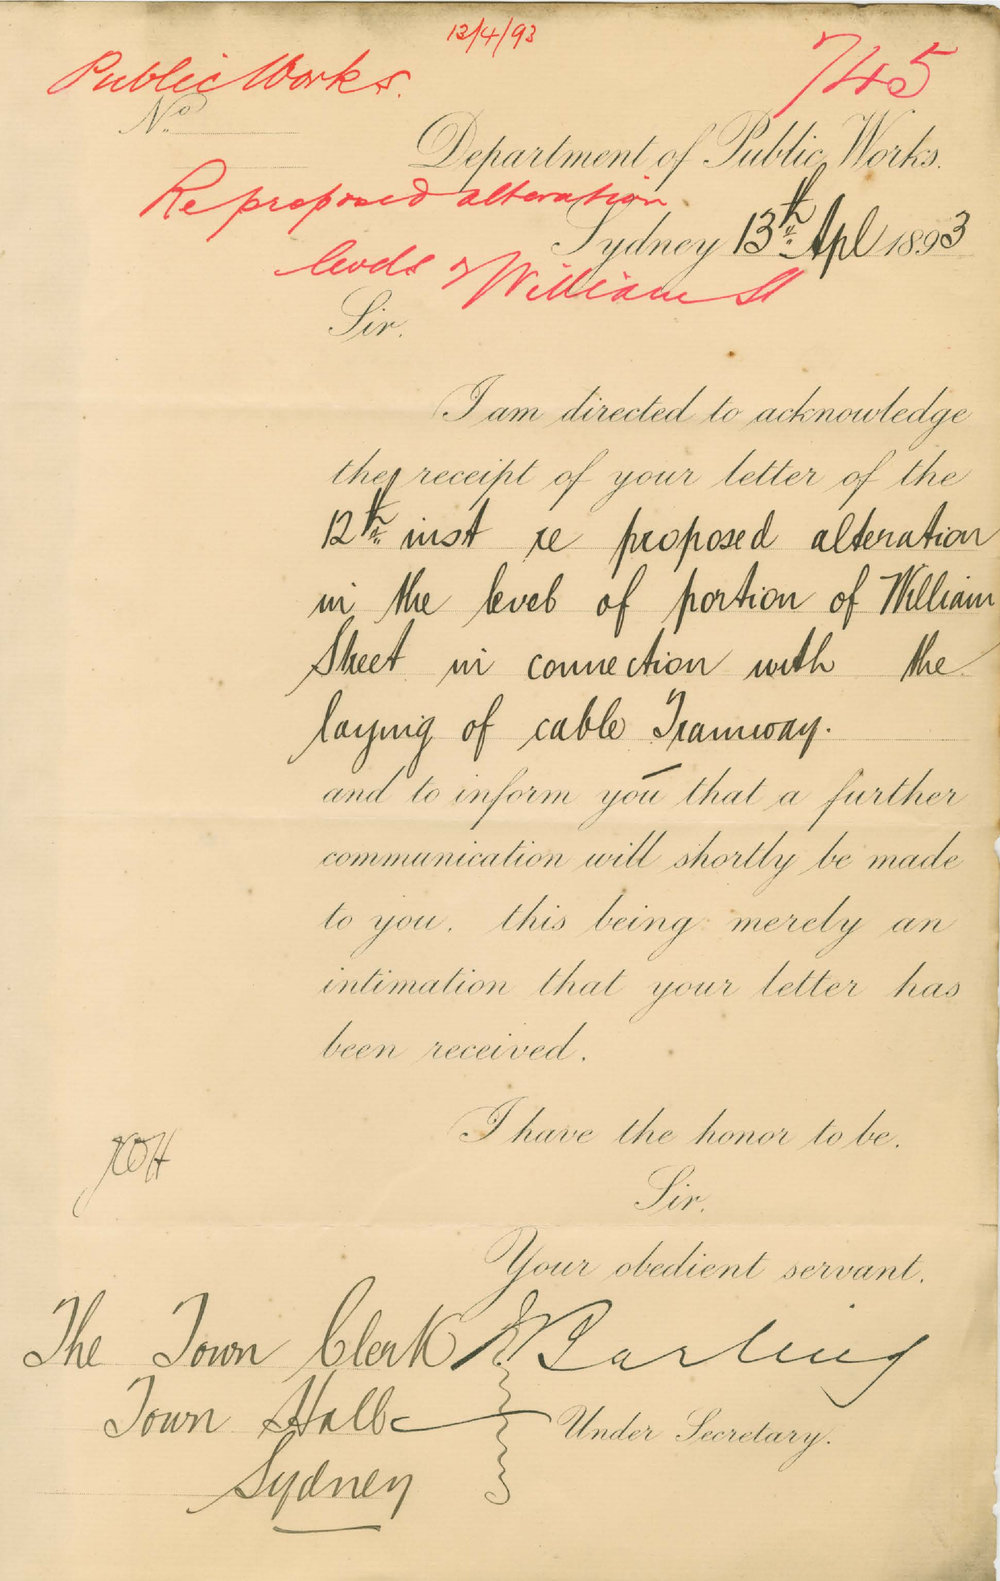 13/4/93
Public Works. 745
No.
Department of Public Works.
Re proposed alteration
Sydney 13th Apl 1893
levels of William St
Sir.
I am directed to acknowledge
the receipt of your letter of the
12th inst re proposed alteration
in the level of portion of William
Street in connection with the
laying of cable Tramway.
and to inform you that a further
communication will shortly be made
to you. this being merely an
intimation that your letter has
been received.
I have the honor to be.
Sir.
Your obedient servant.
The Town Clerk Barling
Town Hall Under Secretary.
Sydney